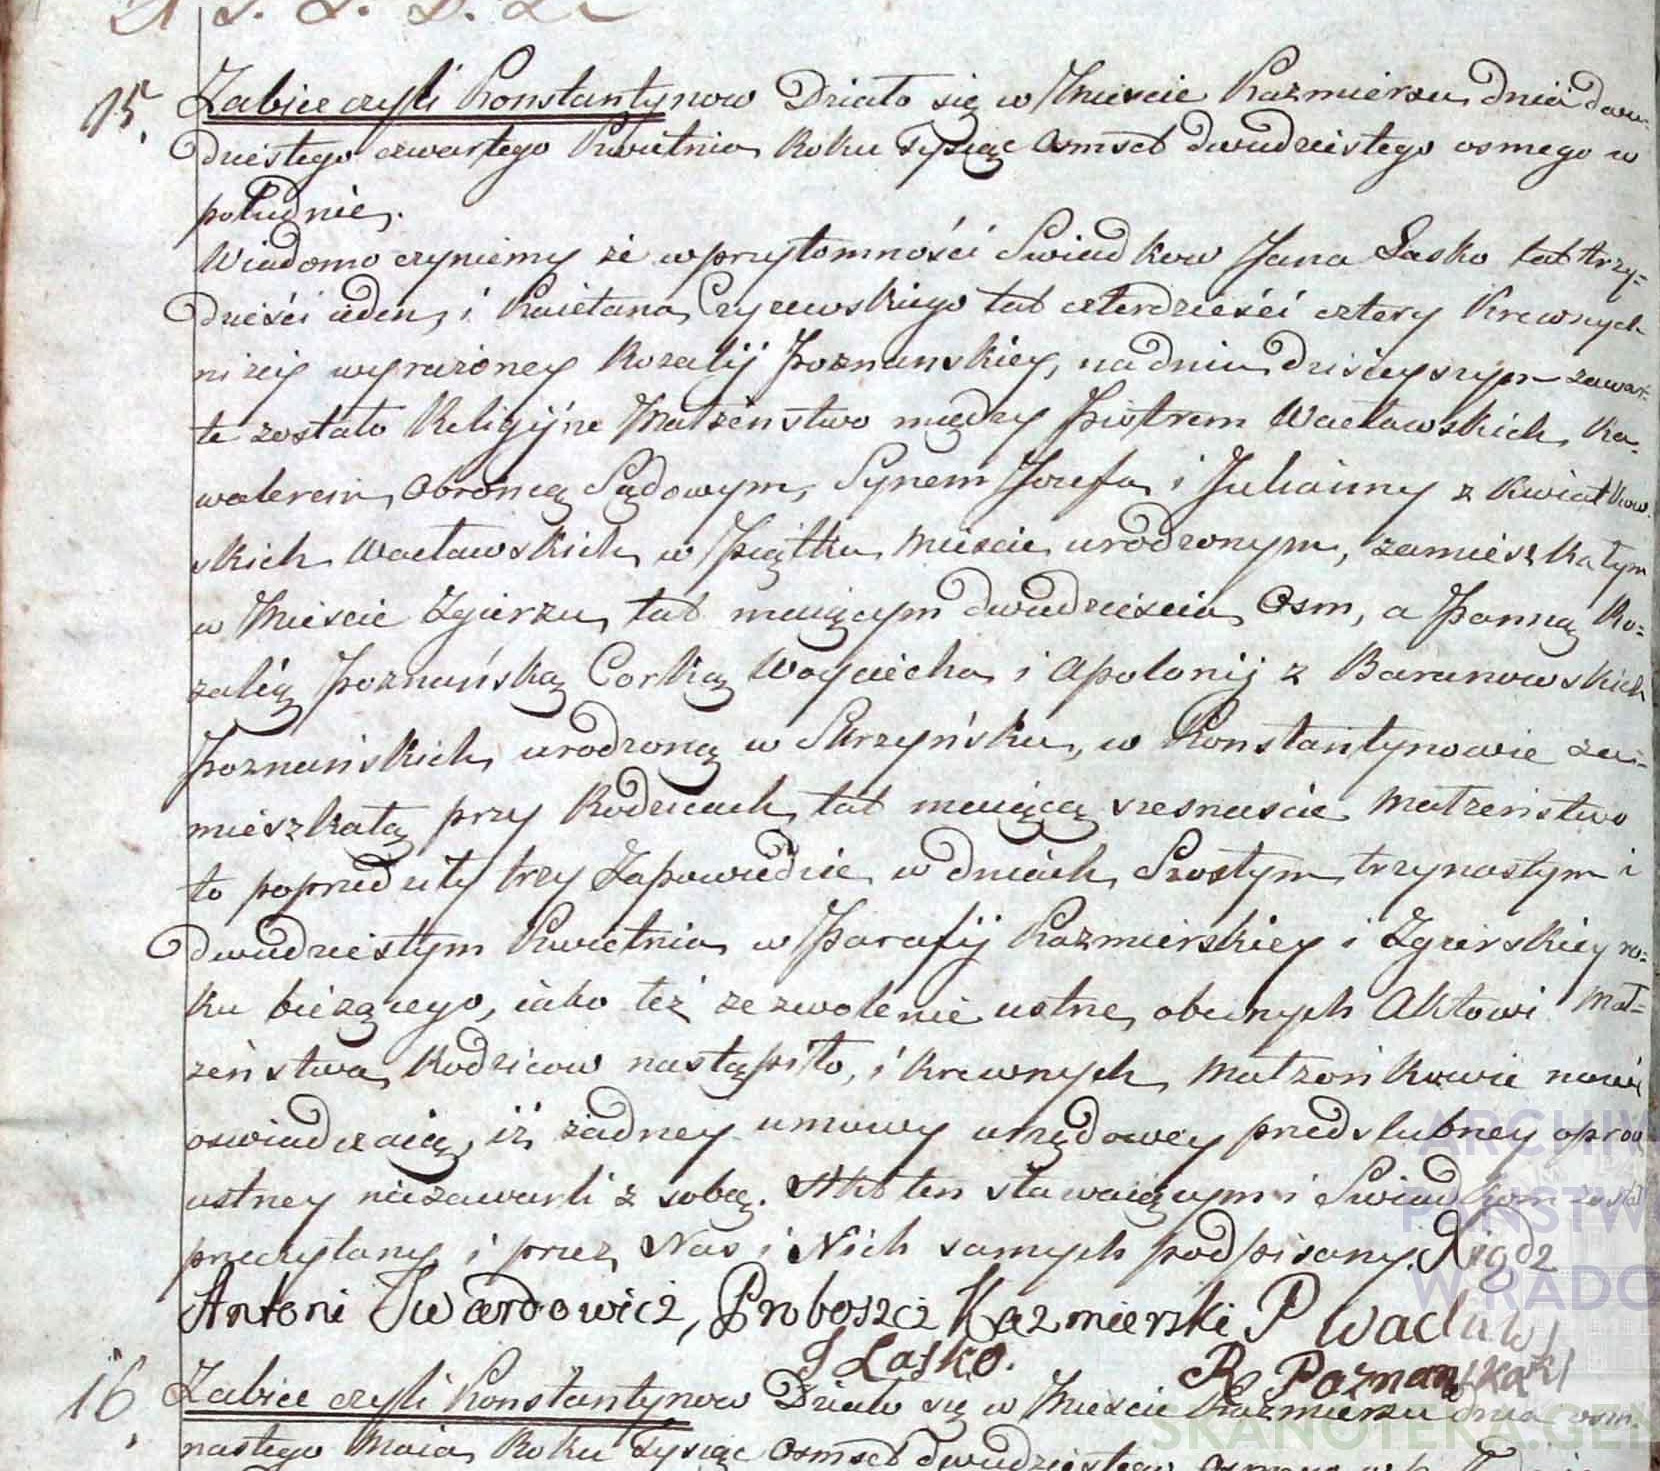 15. Żabice czyli Konstantynow Działo się w Mieście Kazmierzu dnia dwu-
dziestego czwartego Kwietnia Roku Tysiąc Osmset dwudziestego osmego w
południe.
Wiadomo czyniemy że wprzytomności Swiadkow Jana Lasko lat trzy=
dzieści ieden, i Kaietana Czyzewskiego lat czterdzieści cztery Krewnych
niżey wyrażoney Rozalij Poznanskiey, nadniu dzisieyszym zawar-
te zostało Religijne Małżenstwo między Piotrem Wacławskich Ka-
walerem, Obrońcą Sądowym, Synem Jozefa i Julianny z Kwiatkow-
skich Wacławskich w Piątku Mieście urodzonym, zamieszkałym
w Mieście Zgierzu, lat maiącym dwadzieścia Osm, a Panną Ro=
zalią Poznańską Corką Woyciecha i Apolonij z Baranowskich
Poznańskich, urodzoną w Skrzyńsku, w Konstantynowie za=
mieszkałą przy Rodzicach, lat maiącą szesnaście Małżeństwo
to poprzedziły trzy Zapowiedzie w dniach Szostym, trzynastym i
dwudziestym Kwietnia w Parafij Kazmierskiey i Zgierskiey ro=
ku bieżącego, iako też zezwolenie ustne obecnych Aktowi Mał=
żeństwa Rodzicow nastąpiło, i Krewnych, Małżonkowie nowi
oswiadczaią, iż żadney umowy urzędowey przedslubney oprocz
ustney niezawarli z sobą. Akt ten stawaiącym i Swiadkom został
przeczytany i przez Nas i Nich samych podpisany. Xiądz
Antoni Twardowicz, Proboszcz Kazmierski P Wacławski
J Lasko. R Poznanska
16. Żabice czyli Konstantynow Działo się w Mieście Kazmierzu dnia osm-
nastego Maia Roku Tysiąc Osmset dwudziestego
ARCHIW
PAŃSTW
W RADO
SKANOTEKA.GEN